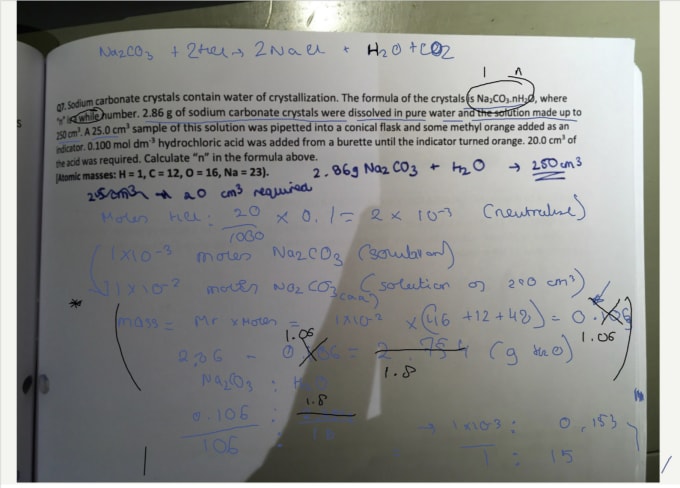 Na2CO3 + 2HCl → 2NaCl + H2O + CO2
1 n
Q7. Sodium carbonate crystals contain water of crystallization. The formula of the crystals is Na2CO3.nH2O, where
"n" is a while number. 2.86 g of sodium carbonate crystals were dissolved in pure water and the solution made up to
250 cm3. A 25.0 cm3 sample of this solution was pipetted into a conical flask and some methyl orange added as an
indicator. 0.100 mol dm-3 hydrochloric acid was added from a burette until the indicator turned orange. 20.0 cm3 of
the acid was required. Calculate "n" in the formula above.
[Atomic masses: H = 1, C = 12, O = 16, Na = 23).
2.86g Na2CO3 + H2O → 250 cm3
→ 20 cm3 required
Moles HCl: 20/1000 × 0.1 = 2 × 10-3 (neutralise)
1×10-3 moles Na2CO3 (solution)
1×10-2 moles Na2CO3 (aq) (solution of 250 cm3)
mass = Mr × Moles = 1×10-2 × (46 +12 + 48) = 0.106
1.06 1.06
2.86 - 0.106 = 2.754 (g H2O)
1.8
Na2CO3 : H2O
1.8
0.106/106 : /18 → 1×10-3 : 0.153
1 : 15